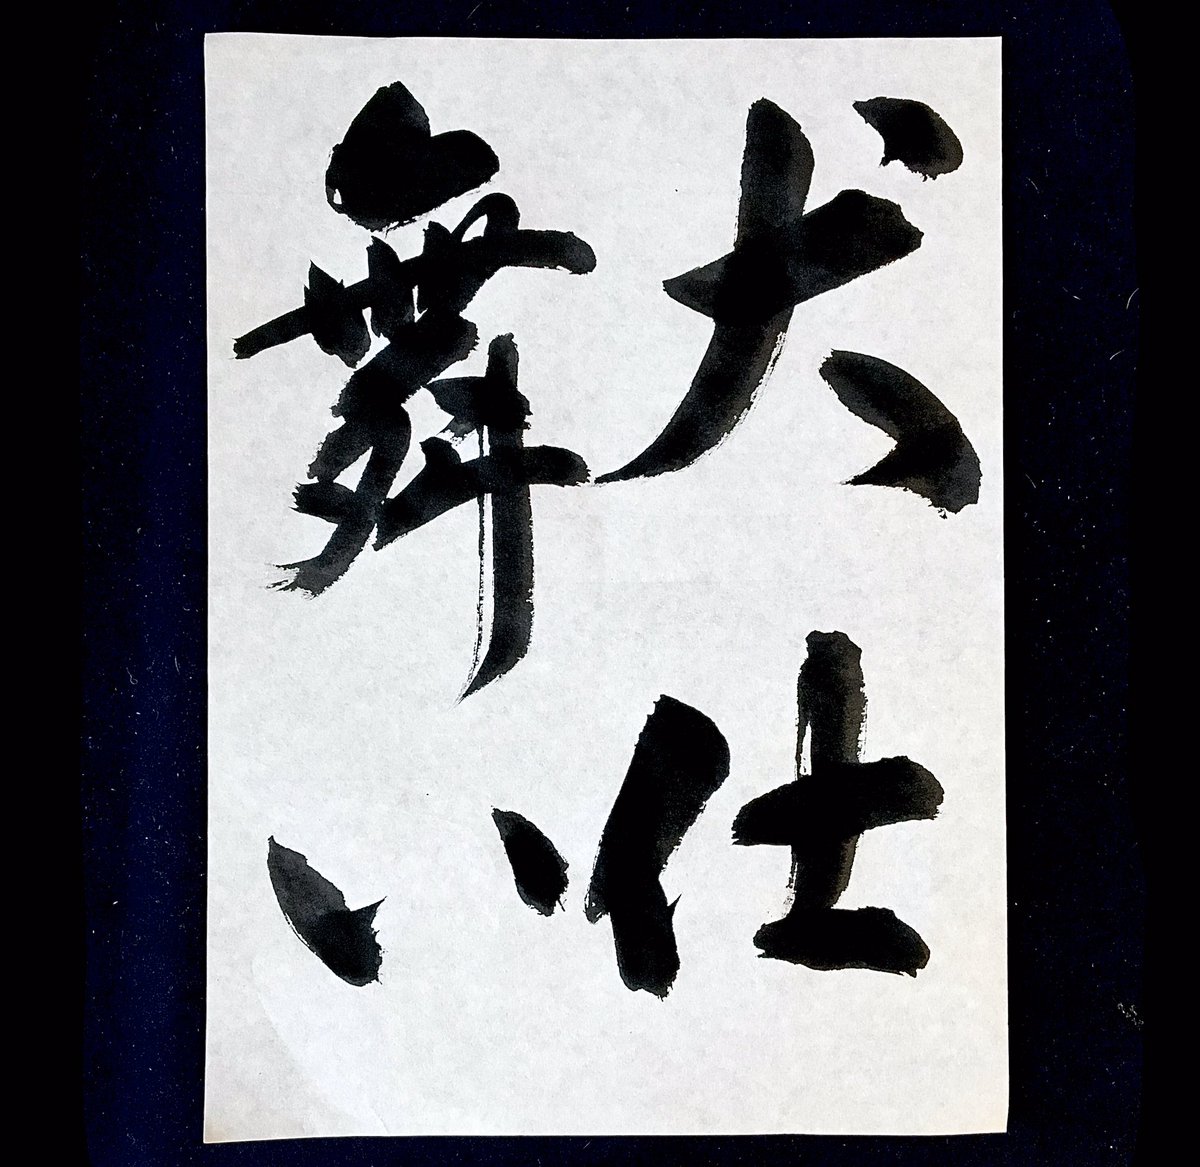 犬仕
舞い